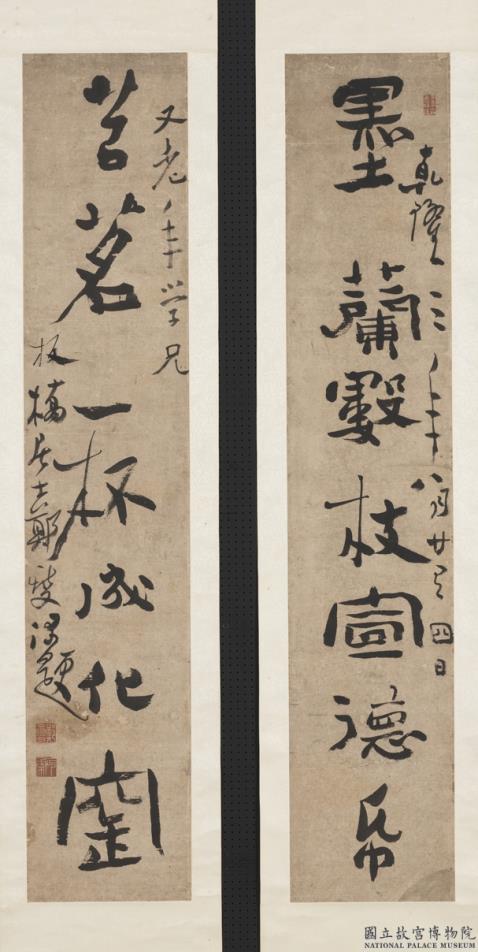 墨蘭數枝宣德帋
乾隆 年八月廿 四日
又老年学兄
苦茗一杯成化窯
板橋居士鄭燮 題
國立故宮博物院
NATIONAL PALACE MUSEUM